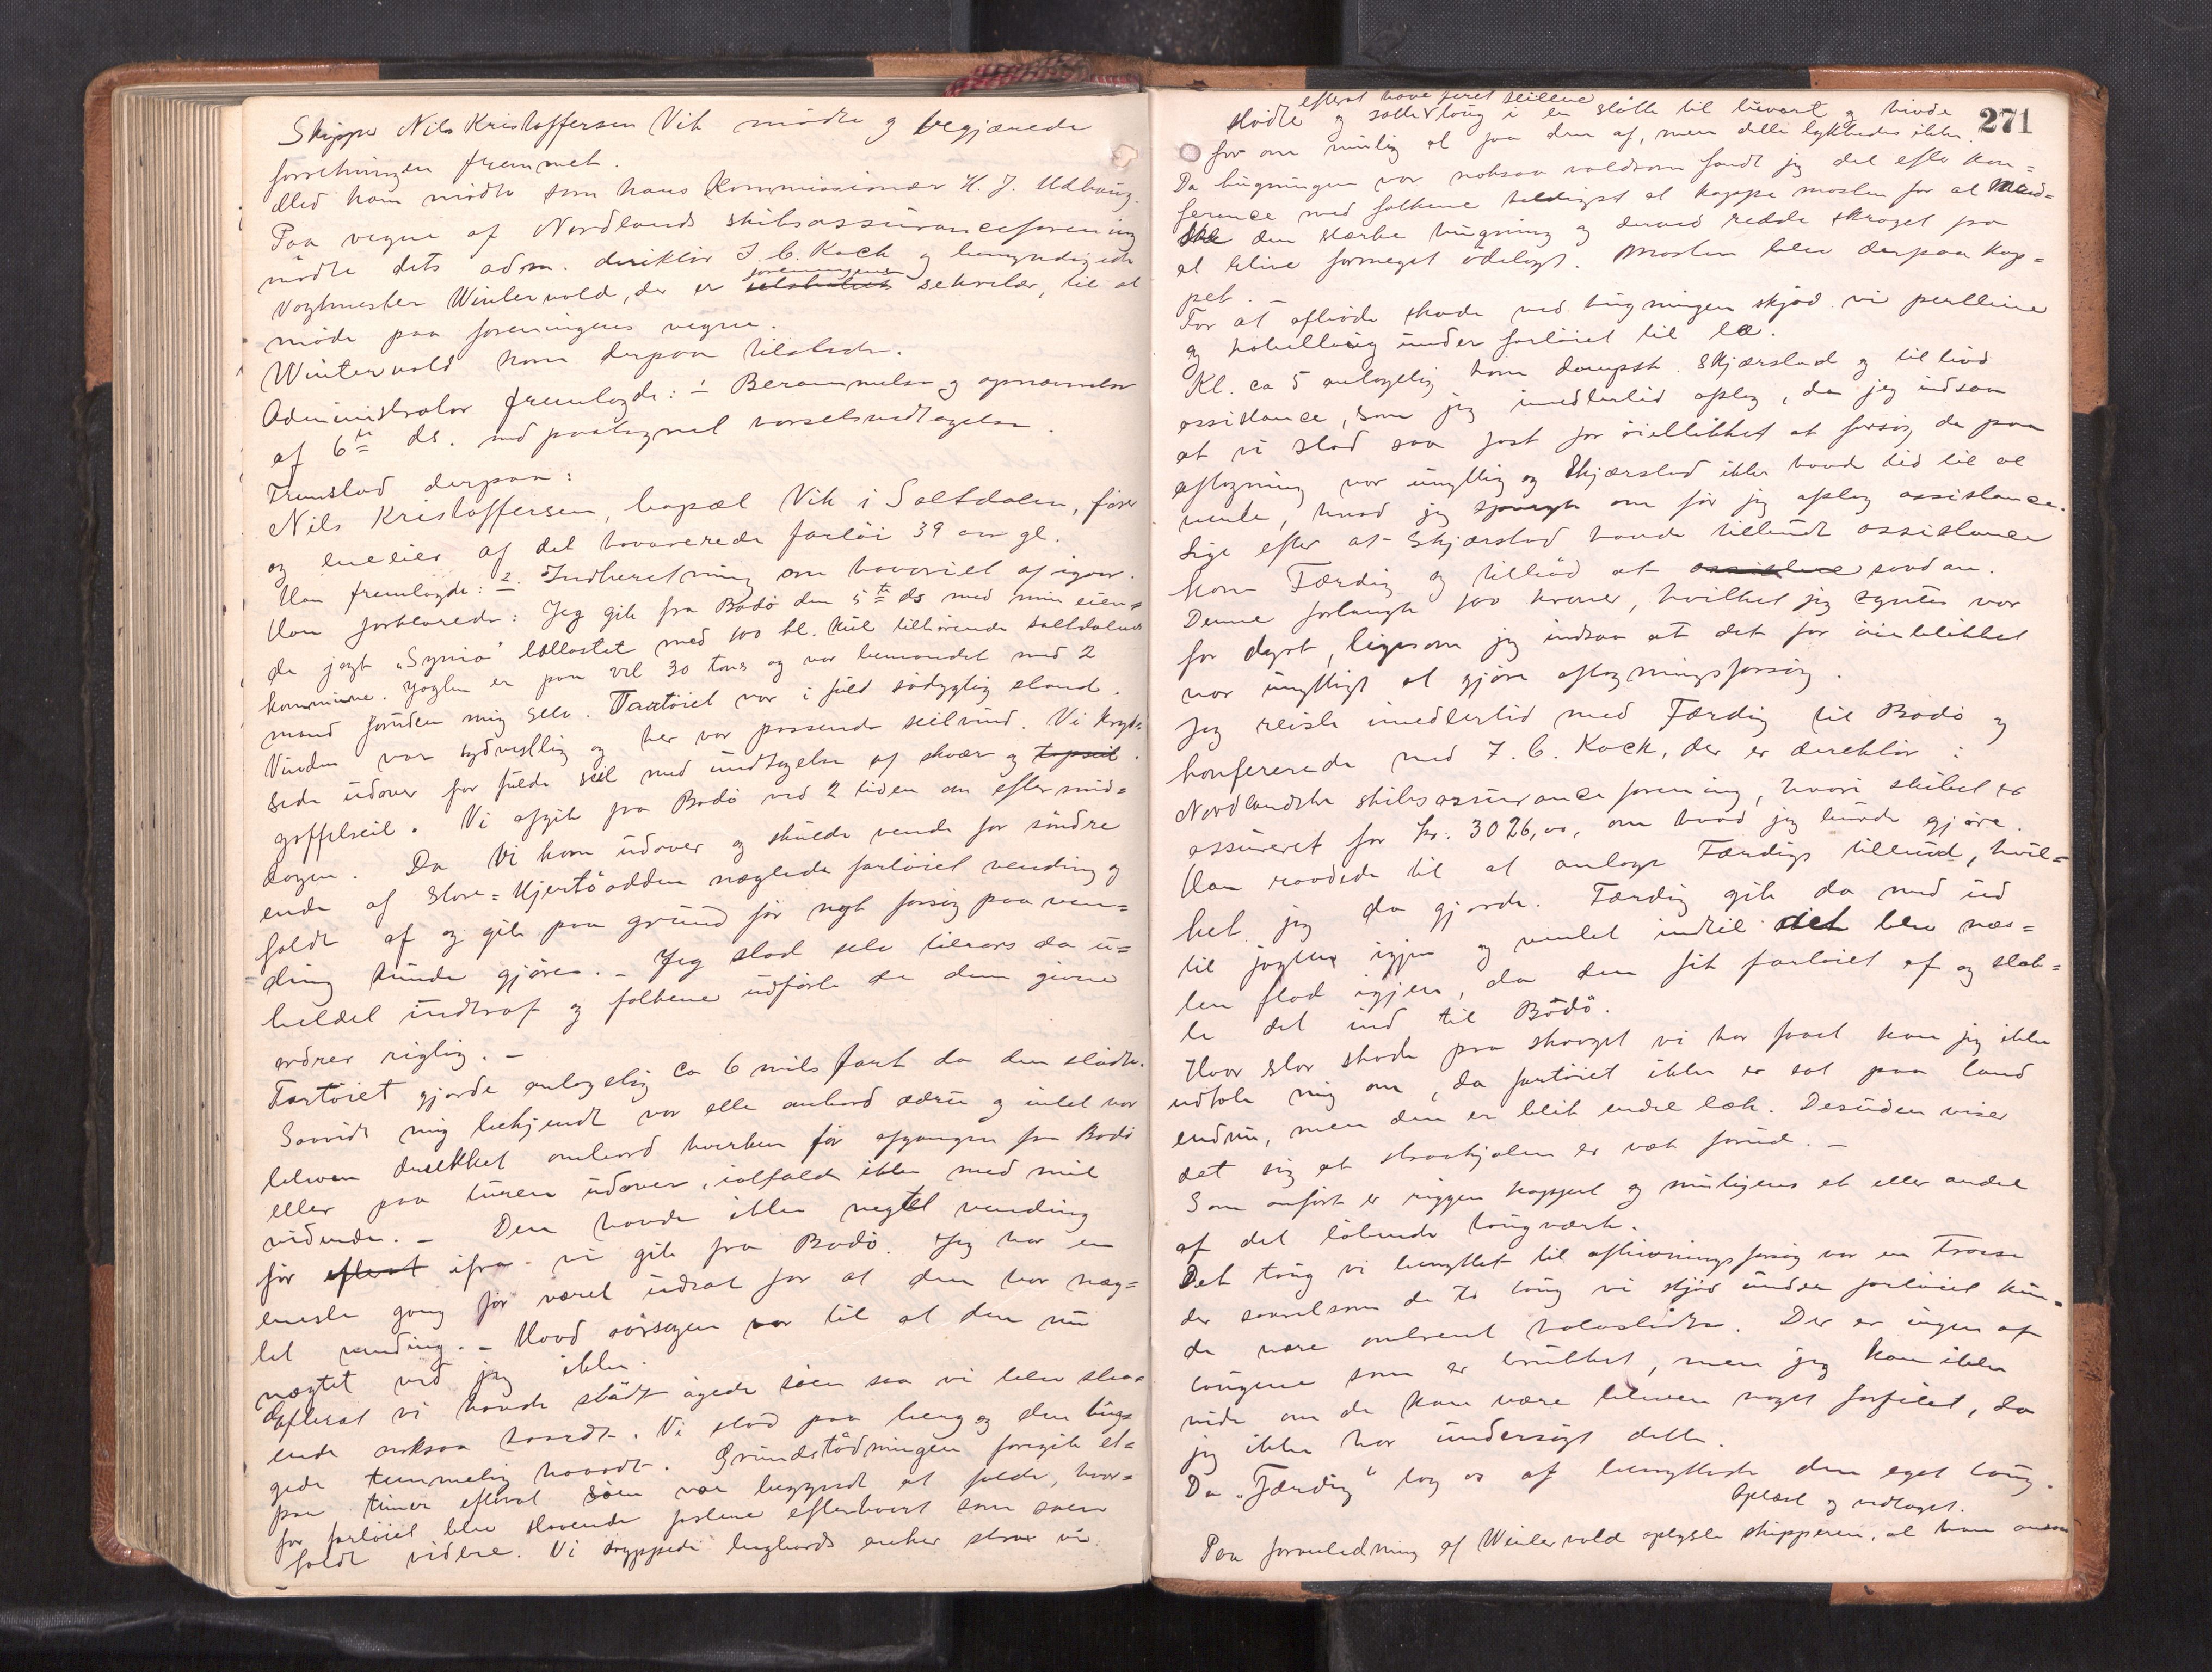 Skipper Nils Kristoffersen Vik mødte og begjærede
forretningen fremmet.
Med ham mødte som hans kommissionær H. J. Udbaug.
Paa vegne af Nordlands skibsassuranceforening
mødte dets adm. direktør J. C. Koch og bemyndigede
Vagtmester Wintervold, der er foreningens sekretær, til at
møde paa foreningens vegne.
Wintervold kom derpaa tilstede.
Administrator fremlagde: 1 Berammelse og opnævnelse
af 6te ds. med paategnet varselsvedtagelse.
Fremstod derpaa:
Nils Kristoffersen, bopæl Vik i Saltdalen, fører
og eneeier af det havarerede fartøi 39 aar gl.
Han fremlagde: 2. Indberetning om havariet af igaar.
Han forklarede: Jeg gik fra Bodø den 5te ds med min eien-
de jagt "Synia" ballastet med 100 hl. kul tilhørende Saltdalens
kommune. Jagten er paa vel 30 tons og var bemandet med 2
mand foruden mig selv. Fartøiet var i fuld sødygtig stand.
Vinden var sydvestlig og her var passende seilvind. Vi kryds-
sede udover for fulde seil med undtagelse af skvær og topseil
gaffelseil. Vi afgik fra Bodø ved 2 tiden om eftermid-
dagen. Da vi kom udover og skulde vende for søndre
ende af Store-Hjertøodden nægtede fartøiet vending og
faldt af og gik paa grund før nyt forsøg paa ven-
ding kunde gjøres. - Jeg stod selv tilrors da u-
heldet indtraf og folkene udførte de dem givne
ordrer rigtig. -
Fartøiet gjorde antagelig ca 6 mils fart da den stødte.
Saavidt mig bekjendt var alle ombord ædru og intet var
bleven drukket ombord hverken før afgangen fra Bodø
eller paa turen udover, ialfald ikke med mit
vidende. - Den havde ikke negtet vending
før efterat ifra vi gik fra Bodø. Jeg har en
eneste gang før været udsat for at den har næg-
tet vending. - Hvad aarsagen var til at den nu
nægtet ved jeg ikke.
Efterat vi havde stødt øgede søen saa vi blev staa-
ende noksaa haardt. Vi stod paa berg og den hug-
gede temmelig haardt. Grundstødningen foregik et-
par timer efterat søen var begyndt at falde, hvor-
for fartøiet blev staaende fastere efterhvert som søen
faldt videre. Vi droppede bugbords anker strax vi
271
efterat have feret seilene
stødte og satte taug i en støtte til luvart og hivde
for om mulig at faa den af, men dette lykkedes ikke.
Da hugningen var noksaa voldsom fandt jeg det efter kon-
ference med folkene heldigst at kappe masten for at mind-
ske den stærke hugning og derved redde skroget fra
at blive formeget ødelagt. Masten blev derpaa kap-
pet.
For at afbøde skade ved hugningen skjød vi pertline
og kabeltaug under fartøiet til læ.
Kl. ca 5 antagelig kom dampsk. Skjærstad og tilbød
assistance, som jeg imidlertid afslog, da jeg indsaa
at vi stod saa fast for øieblikket at forsøg da paa
aftagning var unyttig og Skjærstad ikke havde tid til at
vente, hvad jeg spurgte om før jeg afslog assistance.
Lige efter at Skjærstad havde tilbudt assistance
kom Færdig og tilbød at assistere saadan.
Denne forlangte 100 kroner, hvilket jeg syntes var
for dyrt, ligesom jeg indsaa at det for øieblikket
var unyttigt at gjøre aftagningsforsøg.
Jeg reiste imidlertid med Færdig til Bodø og
konfererede med J. C. Koch, der er direktør i
Nordlandske skibsassuranceforening, hvori skibet er
assureret for kr. 3026,00, om hvad jeg burde gjøre.
Han raadede til at antage Færdigs tilbud, hvil-
ket jeg da gjorde. Færdig gik da med ud
til jagten igjen og ventet indtil det blev næs-
ten flod igjen, da den fik fartøiet af og slæb-
te det ind til Bodø.
Hvor stor skade paa skroget vi har faaet kan jeg ikke
udtale mig om, da fartøiet ikke er sat paa land
endnu, men den er blit endel læk. Desuden viser
det sig at straakjølen er væk forud. -
Som anført er riggen kappet og muligens et eller andet
af det løbende taugværk.
Det taug vi benyttet til afhivningsforsøg var en trosse
der saavelsom de to taug vi skjød under fartøiet kun-
de være omtrent halvslidte. Der er ingen af
taugene som er brukket, men jeg kan ikke
vide om de kan være bleven noget forfilet, da
jeg ikke har undersøgt dette.
Da "Færdig" tog os af benyttede den eget taug.
Oplæst og vedtaget.
Paa foranledning af Wintervold oplyste skipperen, at han ansaa